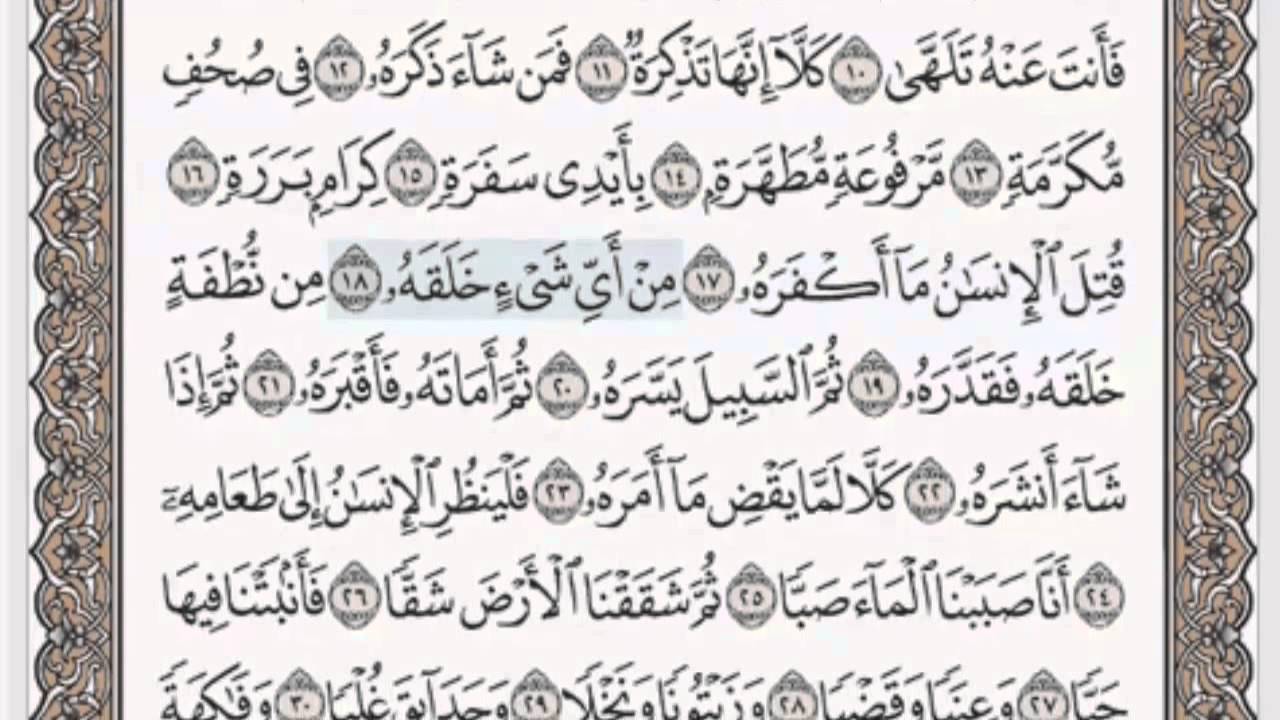 فَأَنتَ عَنْهُ تَلَهَّىٰ ١٠ كَلَّآ إِنَّهَا تَذْكِرَةٌ ١١ فَمَن شَآءَ ذَكَرَهُۥ ١٢ فِى صُحُفٍ
مُّكَرَّمَةٍ ١٣ مَّرْفُوعَةٍ مُّطَهَّرَةٍۭ ١٤ بِأَيْدِى سَفَرَةٍ ١٥ كِرَامٍۭ بَرَرَةٍ ١٦
قُتِلَ ٱلْإِنسَٰنُ مَآ أَكْفَرَهُۥ ١٧ مِنْ أَىِّ شَىْءٍ خَلَقَهُۥ ١٨ مِن نُّطْفَةٍ
خَلَقَهُۥ فَقَدَّرَهُۥ ١٩ ثُمَّ ٱلسَّبِيلَ يَسَّرَهُۥ ٢٠ ثُمَّ أَمَاتَهُۥ فَأَقْبَرَهُۥ ٢١ ثُمَّ إِذَا
شَآءَ أَنشَرَهُۥ ٢٢ كَلَّا لَمَّا يَقْضِ مَآ أَمَرَهُۥ ٢٣ فَلْيَنظُرِ ٱلْإِنسَٰنُ إِلَىٰ طَعَامِهِۦٓ
٢٤ أَنَّا صَبَبْنَا ٱلْمَآءَ صَبًّا ٢٥ ثُمَّ شَقَقْنَا ٱلْأَرْضَ شَقًّا ٢٦ فَأَنۢبَتْنَا فِيهَا
حَبًّا ٢٧ وَعِنَبًا وَقَضْبًا ٢٨ وَزَيْتُونًا وَنَخْلًا ٢٩ وَحَدَآئِقَ غُلْبًا ٣٠ وَفَٰكِهَةً